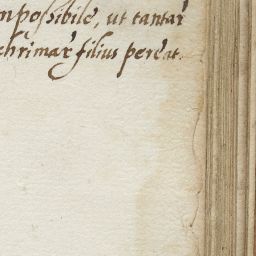 mpossibile, ut tantar
chrimar filius pereat.